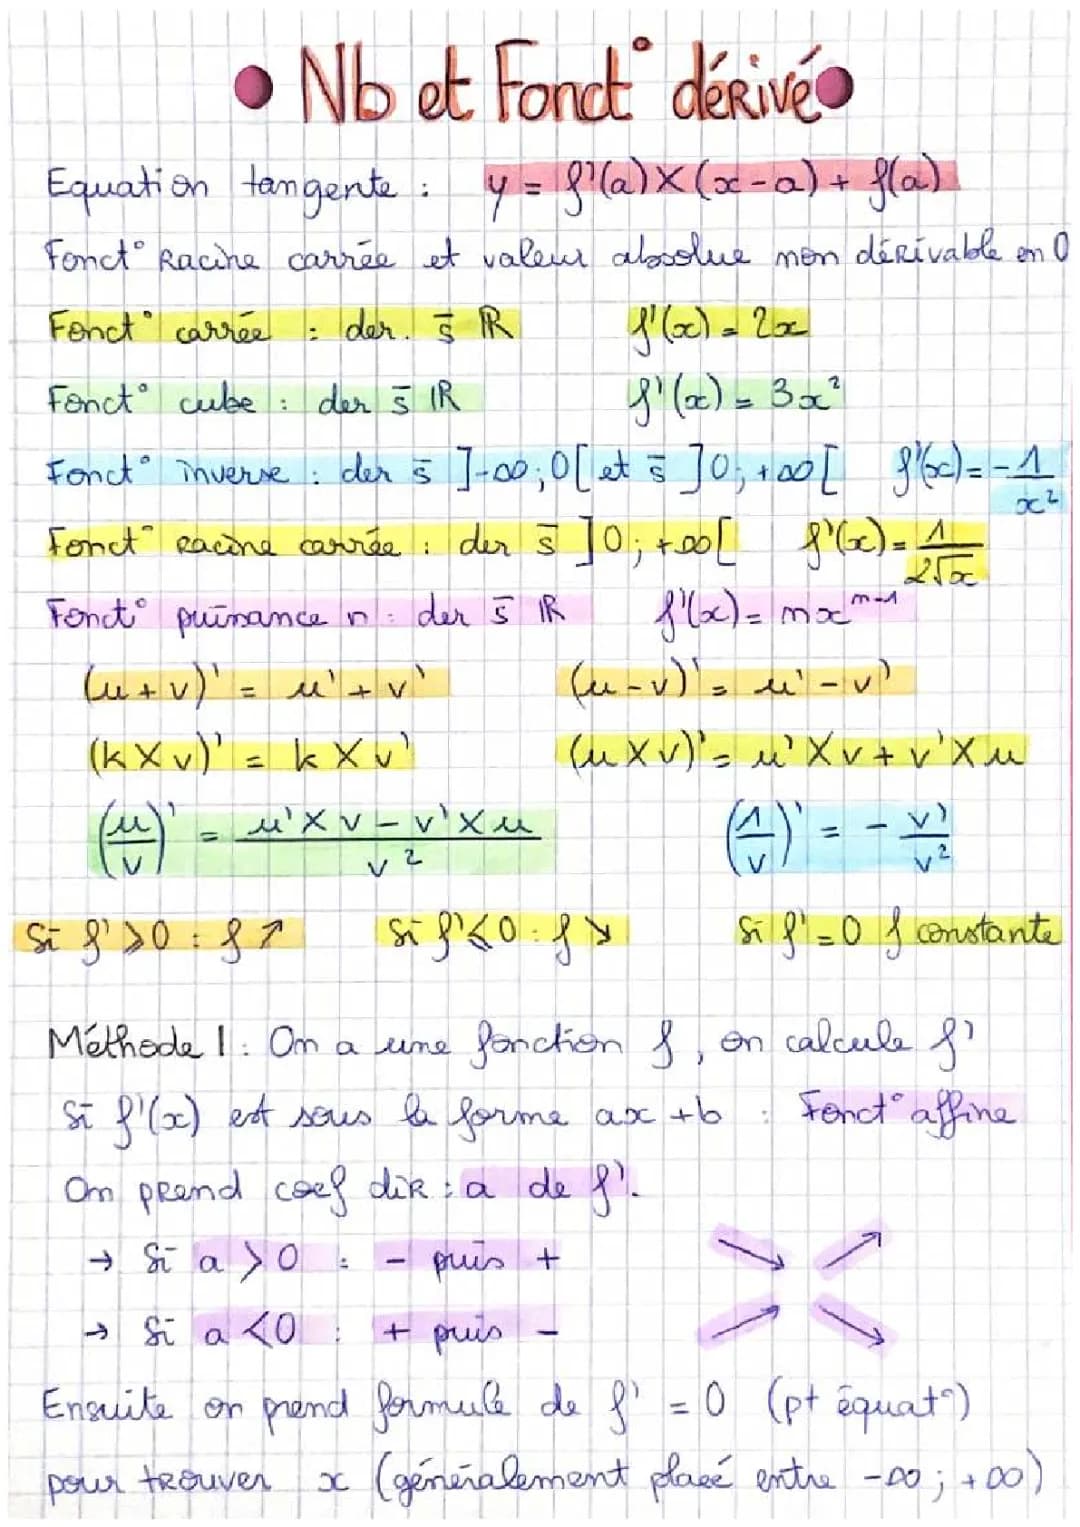 • Nb et Fonct° dérivé •
Equation tangente : y = f'(a) × (x - a) + f(a)
Fonct° Racine carrée et valeur absolue non dérivable en 0
Fonct° carrée : der. s̄ ℝ f'(x) = 2x
Fonct° cube : der s̄ ℝ f'(x) = 3x²
Fonct° inverse : der s̄ ]-∞; 0[ et s̄ ]0; +∞[ f'(x) = -1/x²
Fonct° racine carrée : der s̄ ]0; +∞[ f'(x) = 1/2√x
Fonct° puissance n : der s̄ ℝ f'(x) = nxⁿ⁻¹
(u + v)' = u' + v' (u - v)' = u' - v'
(k × v)' = k × v' (u × v)' = u' × v + v' × u
(u/v)' = u' × v - v' × u / v² (1/v)' = - v'/v²
Si f' ⩾ 0 : f ↗ Si f' ⩽ 0 : f ↘ Si f' = 0 f constante
Méthode 1 : On a une fonction f, on calcule f'
Si f'(x) est sous la forme ax + b : Fonct° affine
On prend coef dir : a de f'.
→ Si a > 0 : - puis + ↘ ↗
→ Si a < 0 : + puis - ↗ ↘
Ensuite on prend formule de f' = 0 (pt équat°)
pour trouver x (généralement placé entre -∞ ; +∞)